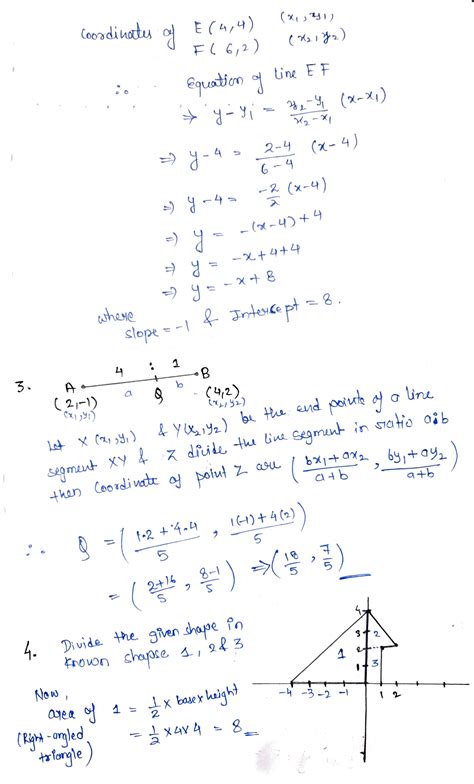 Coordinates of E(4,4) (x₁,y₁)
F(6,2) (x₂,y₂)
∴ Equation of line EF
⇒ y-y₁ = y₂-y₁/x₂-x₁ (x-x₁)
⇒ y-4 = 2-4/6-4 (x-4)
⇒ y-4 = -2/2 (x-4)
⇒ y = -(x-4)+4
⇒ y = -x+4+4
⇒ y = -x+8
where
slope=-1 & Intercept = 8.
3.
4 : 1
A a Q b B
(2,-1) (4,2)
(x₁,y₁) (x₂,y₂)
Let X(x₁,y₁) & Y(x₂,y₂) be the end points of a line
segment XY & Z divide the line segment in ratio a:b
then Coordinate of point Z are (bx₁+ax₂/a+b, by₁+ay₂/a+b)
∴ Q = (1·2+4·4/5, 1(-1)+4(2)/5)
= (2+16/5, 8-1/5) ⇒ (18/5, 7/5)
4. Divide the given shape in
known shapse 1, 2 & 3
Now,
area of 1 = 1/2 x base x height
(Right-angled
triangle)
= 1/2 x 4 x 4 = 8
4
3 2
2
1 1 3
-4 -3 -2 -1 1 2